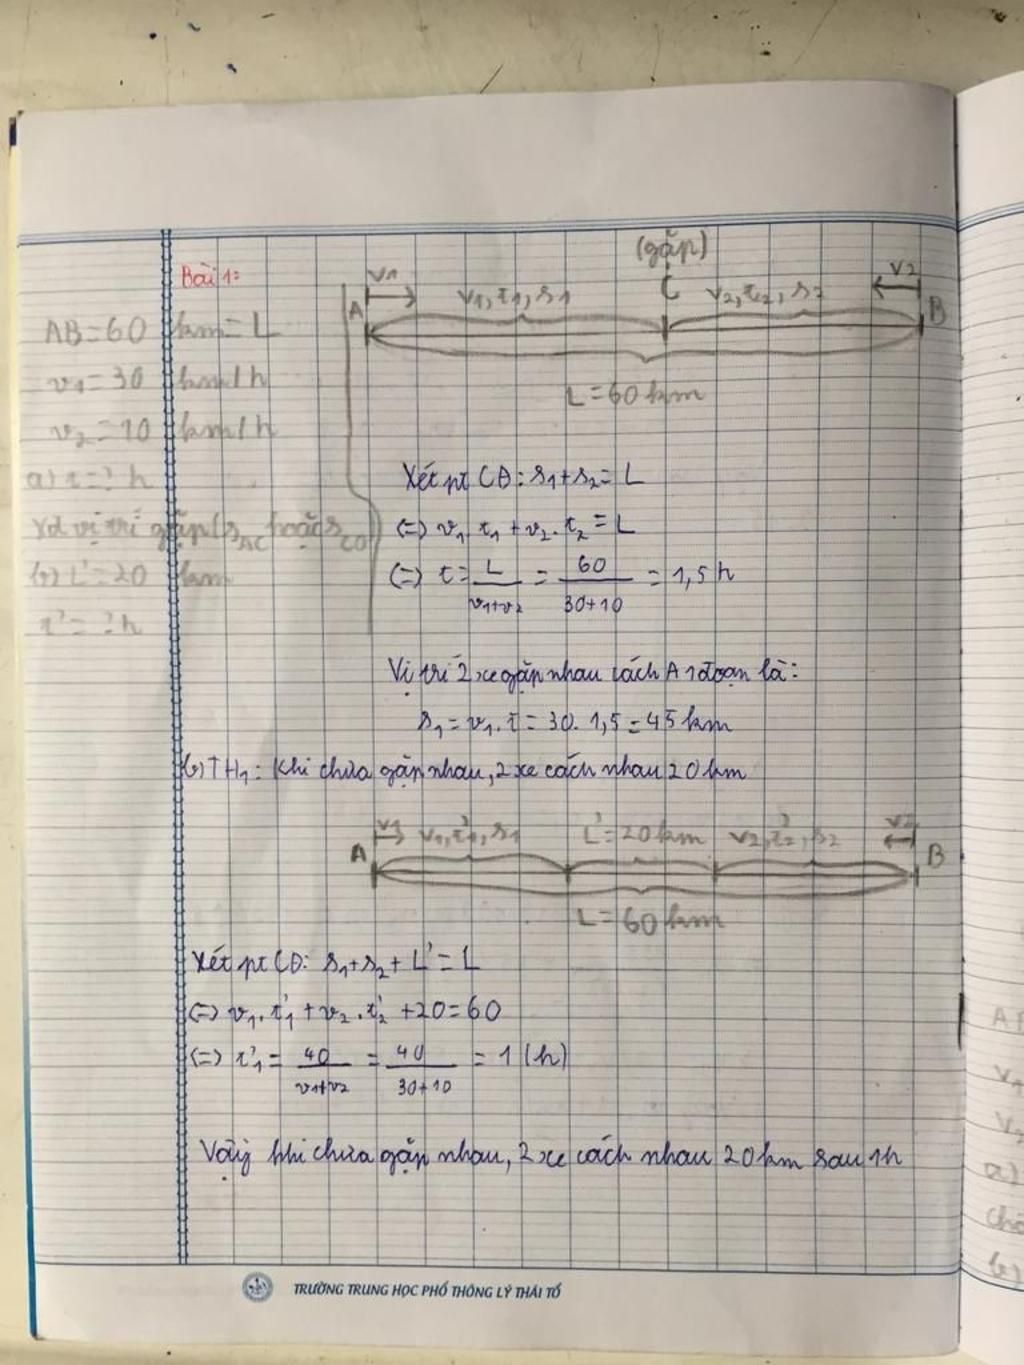 Bài 1:
AB=60 km=L
v1=30 km/h
v2=10 km/h
a) t=? h
Xđ vị trí gặp (sAC hoặc sCD)
b) L'=20 km
t'=? h
(gặp)
v1 v1, t1, s1 C v2, t2, s2 v2
A B
L=60 km
Xét pt CĐ: s1+s2=L
(=) v1 t1 + v2. t2 = L
(=) t = L/(v1+v2) = 60/(30+10) = 1,5 h
Vị trí 2 xe gặp nhau cách A 1 đoạn là:
s1=v1.t=30. 1,5=45 km
b) TH1: Khi chưa gặp nhau, 2 xe cách nhau 20 km
v1 v1, t'1, s1 L'=20 km v2, t'2, s2 v2
A B
L=60 km
Xét pt CĐ: s1+s2+L'=L
(=) v1.t'1+v2.t'2+20=60
(=) t'1 = 40/(v1+v2) = 40/(30+10) = 1 (h)
Vậy khi chưa gặp nhau, 2 xe cách nhau 20 km sau 1h
TRƯỜNG TRUNG HỌC PHỔ THÔNG LÝ THÁI TỔ
v1
a)
b)